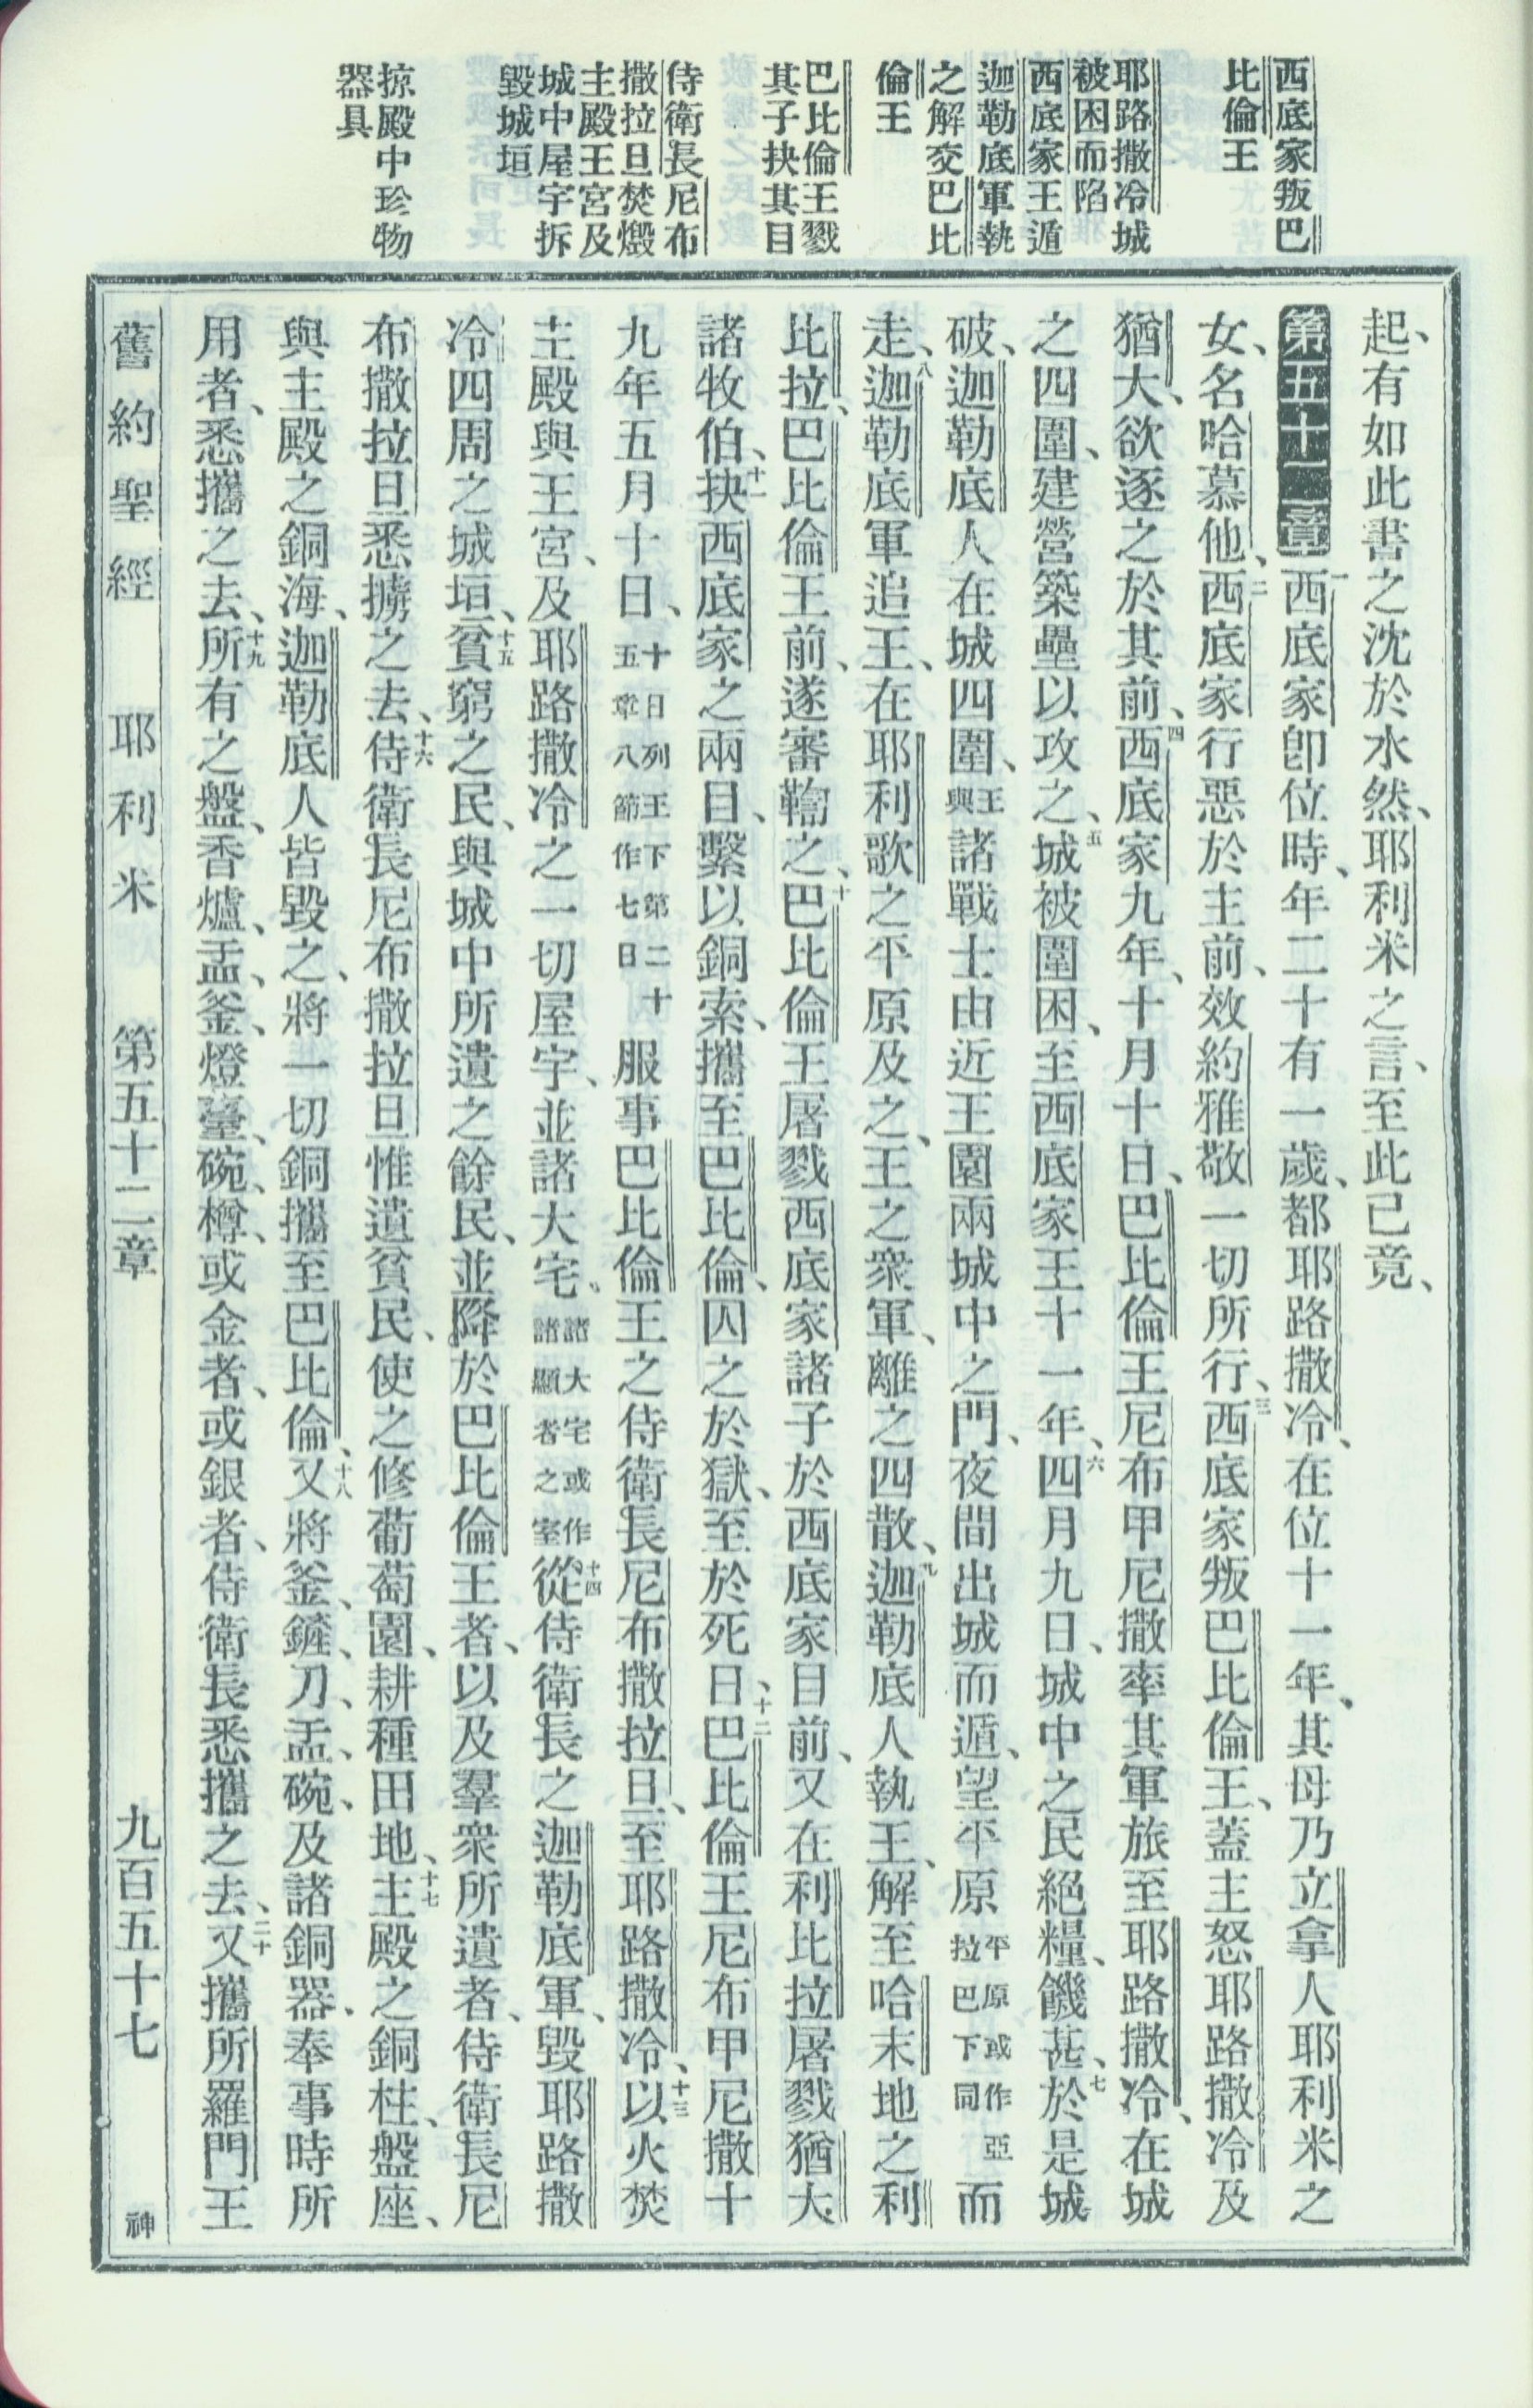 西底家叛巴
比倫王
耶路撒冷城
被困而陷
西底家王遁
迦勒底軍執
之解交巴比
倫王
巴比倫王戮
其子抉其目
侍衛長尼布
撒拉旦焚燬
主殿王宮及
城中屋宇拆
毀城垣
掠殿中珍物
器具
起、有如此書之沈於水然、耶利米之言、至此已竟、
第五十二章 一西底家即位時、年二十有一歲、都耶路撒冷、在位十一年、其母乃立拿人耶利米之
女、名哈慕他、二西底家行惡於主前、效約雅敬一切所行、三西底家叛巴比倫王、蓋主怒耶路撒冷及
猶大、欲逐之於其前、四西底家九年、十月十日、巴比倫王尼布甲尼撒率其軍旅至耶路撒冷、在城
之四圍、建營築壘以攻之、五城被圍困、至西底家王十一年、六四月九日、城中之民絕糧、饑甚、七於是城
破、迦勒底人在城四圍、王與諸戰士由近王園兩城中之門、夜間出城而遁、望平原平原或作亞拉巴下同而
走、八迦勒底軍追王、在耶利歌之平原及之、王之衆軍、離之四散、九迦勒底人執王、解至哈末地之利
比拉、巴比倫王前、遂審鞫之、十巴比倫王屠戮西底家諸子於西底家目前、又在利比拉屠戮猶大
諸牧伯、十一抉西底家之兩目、繫以銅索、攜至巴比倫、囚之於獄、至於死日、十二巴比倫王尼布甲尼撒十
九年五月十日、十日列王下第二十五章八節作七日服事巴比倫王之侍衛長尼布撒拉旦、至耶路撒冷、十三以火焚
主殿與王宮、及耶路撒冷之一切屋宇、並諸大宅、諸大宅或作諸顯者之室十四從侍衛長之迦勒底軍、毀耶路撒
冷四周之城垣、十五貧窮之民、與城中所遺之餘民、並降於巴比倫王者、以及羣衆所遺者、侍衛長尼
布撒拉旦悉擄之去、十六侍衛長尼布撒拉旦惟遺貧民、使之修葡萄園、耕種田地、十七主殿之銅柱、盤座、
與主殿之銅海、迦勒底人皆毀之、將一切銅攜至巴比倫、十八又將釜、鏟、刀、盂、碗、及諸銅器、奉事時所
用者、悉攜之去、十九所有之盤、香爐、盂、釜、燈臺、碗、樽、或金者、或銀者、侍衛長悉攜之去、二十又攜所羅門王
舊約聖經 耶利米 第五十二章 九百五十七 神